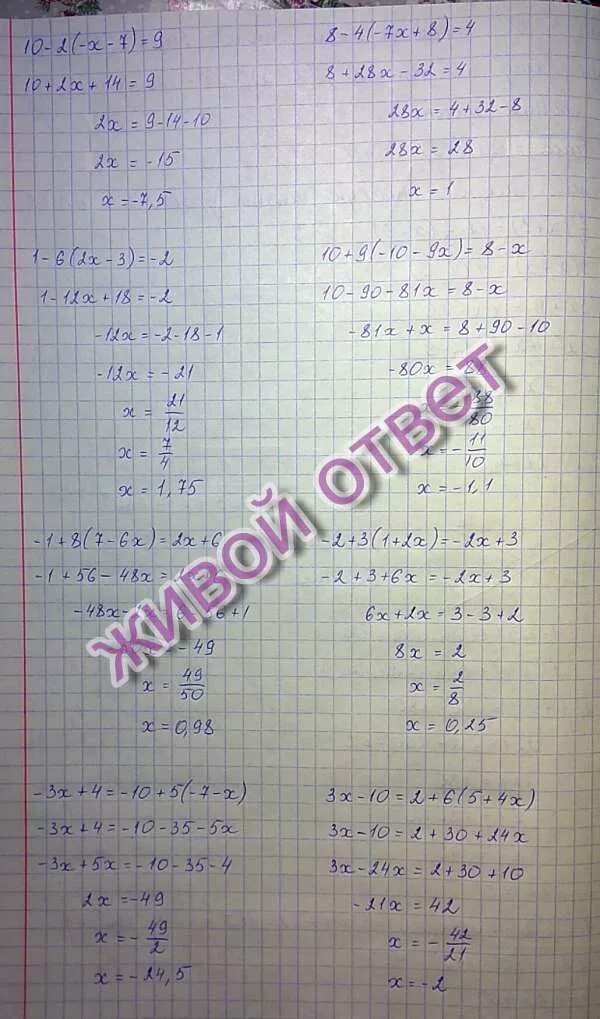 10-2(-x-7)=9
10+2x+14=9
2x=9-14-10
2x=-15
x=-7,5
8-4(-7x+8)=4
8+28x-32=4
28x=4+32-8
28x=28
x=1
1-6(2x-3)=-2
1-12x+18=-2
-12x=-2-18-1
-12x=-21
x=21/12
x=7/4
x=1,75
10+9(-10-9x)=8-x
10-90-81x=8-x
-81x+x=8+90-10
-80x=
80
-11/10
x=-1,1
-1+8(7-6x)=2x+6
-1+56-48x=
-48x
+1
-49
x=49/50
x=0,98
-2+3(1+2x)=-2x+3
-2+3+6x=-2x+3
6x+2x=3-3+2
8x=2
x=2/8
x=0,25
-3x+4=-10+5(-7-x)
-3x+4=-10-35-5x
-3x+5x=-10-35-4
2x=-49
x=-49/2
x=-24,5
3x-10=2+6(5+4x)
3x-10=2+30+24x
3x-24x=2+30+10
-21x=42
x=-42/21
x=-2
ЖИВОЙ ОТВЕТ